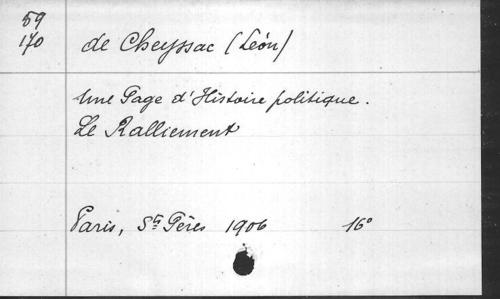 59
170
de Cheyssac (Léon)
Une Page d'Histoire politique.
Le Ralliement
Paris, Sts Pères 1906 16°